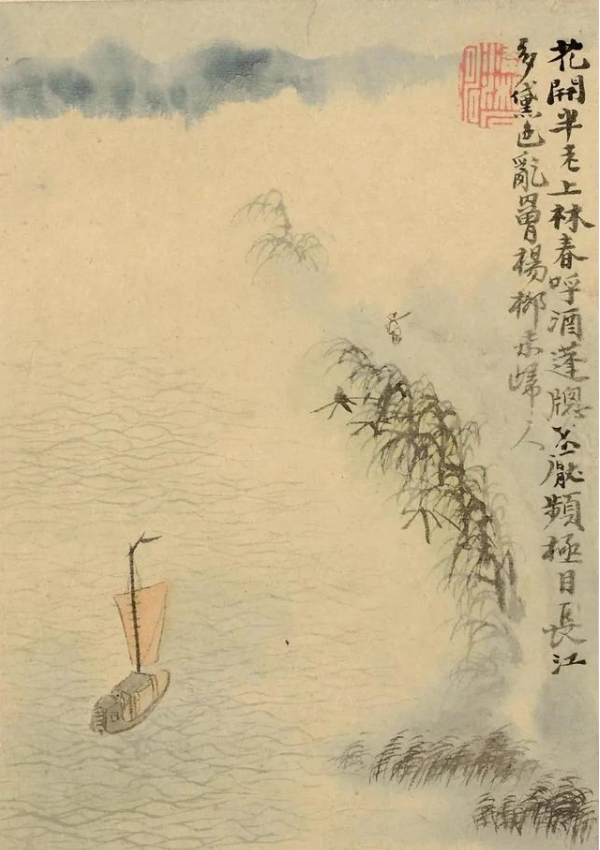 花開半老上林春呼酒蓬牎不厭頻極目長江
多黛色亂曾楊柳未歸人